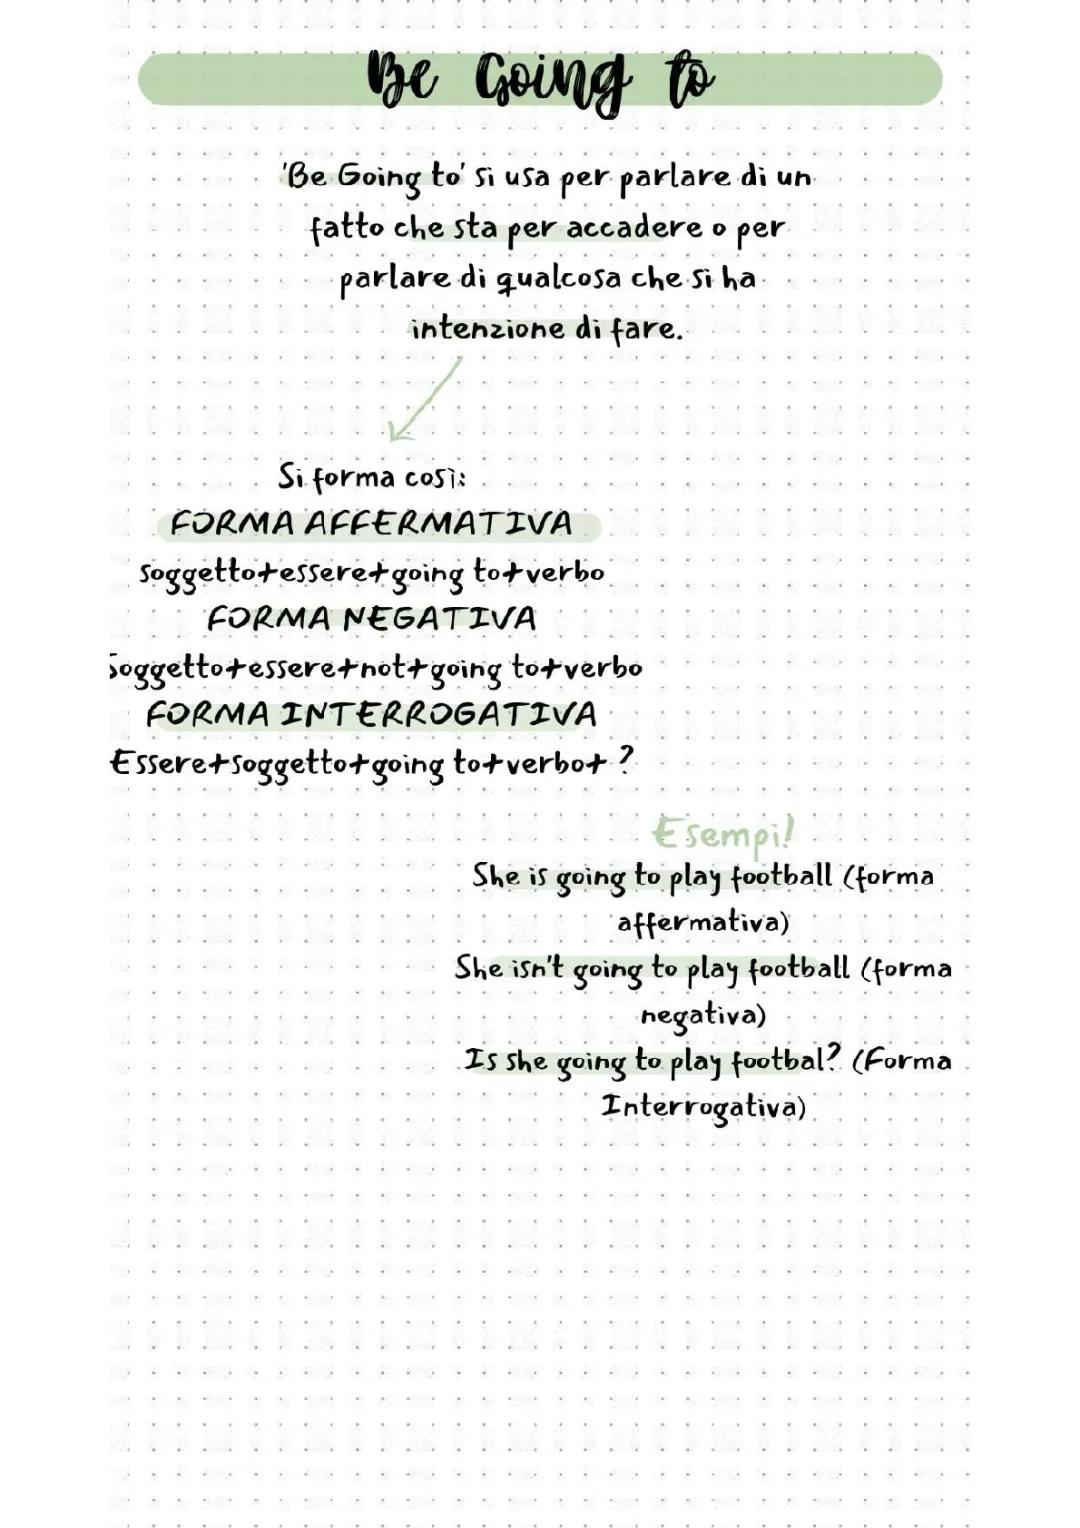 Be Going to
'Be Going to' si usa per parlare di un
fatto che sta per accadere o per
parlare di qualcosa che si ha
intenzione di fare.
Si forma così:
FORMA AFFERMATIVA
soggetto+essere+going to+verbo
FORMA NEGATIVA
Soggetto+essere+not+going to+verbo
FORMA INTERROGATIVA
Essere+soggetto+going to+verbo+ ?
Esempi!
She is going to play football (forma
affermativa)
She isn't going to play football (forma
negativa)
Is she going to play footbal? (Forma
Interrogativa)